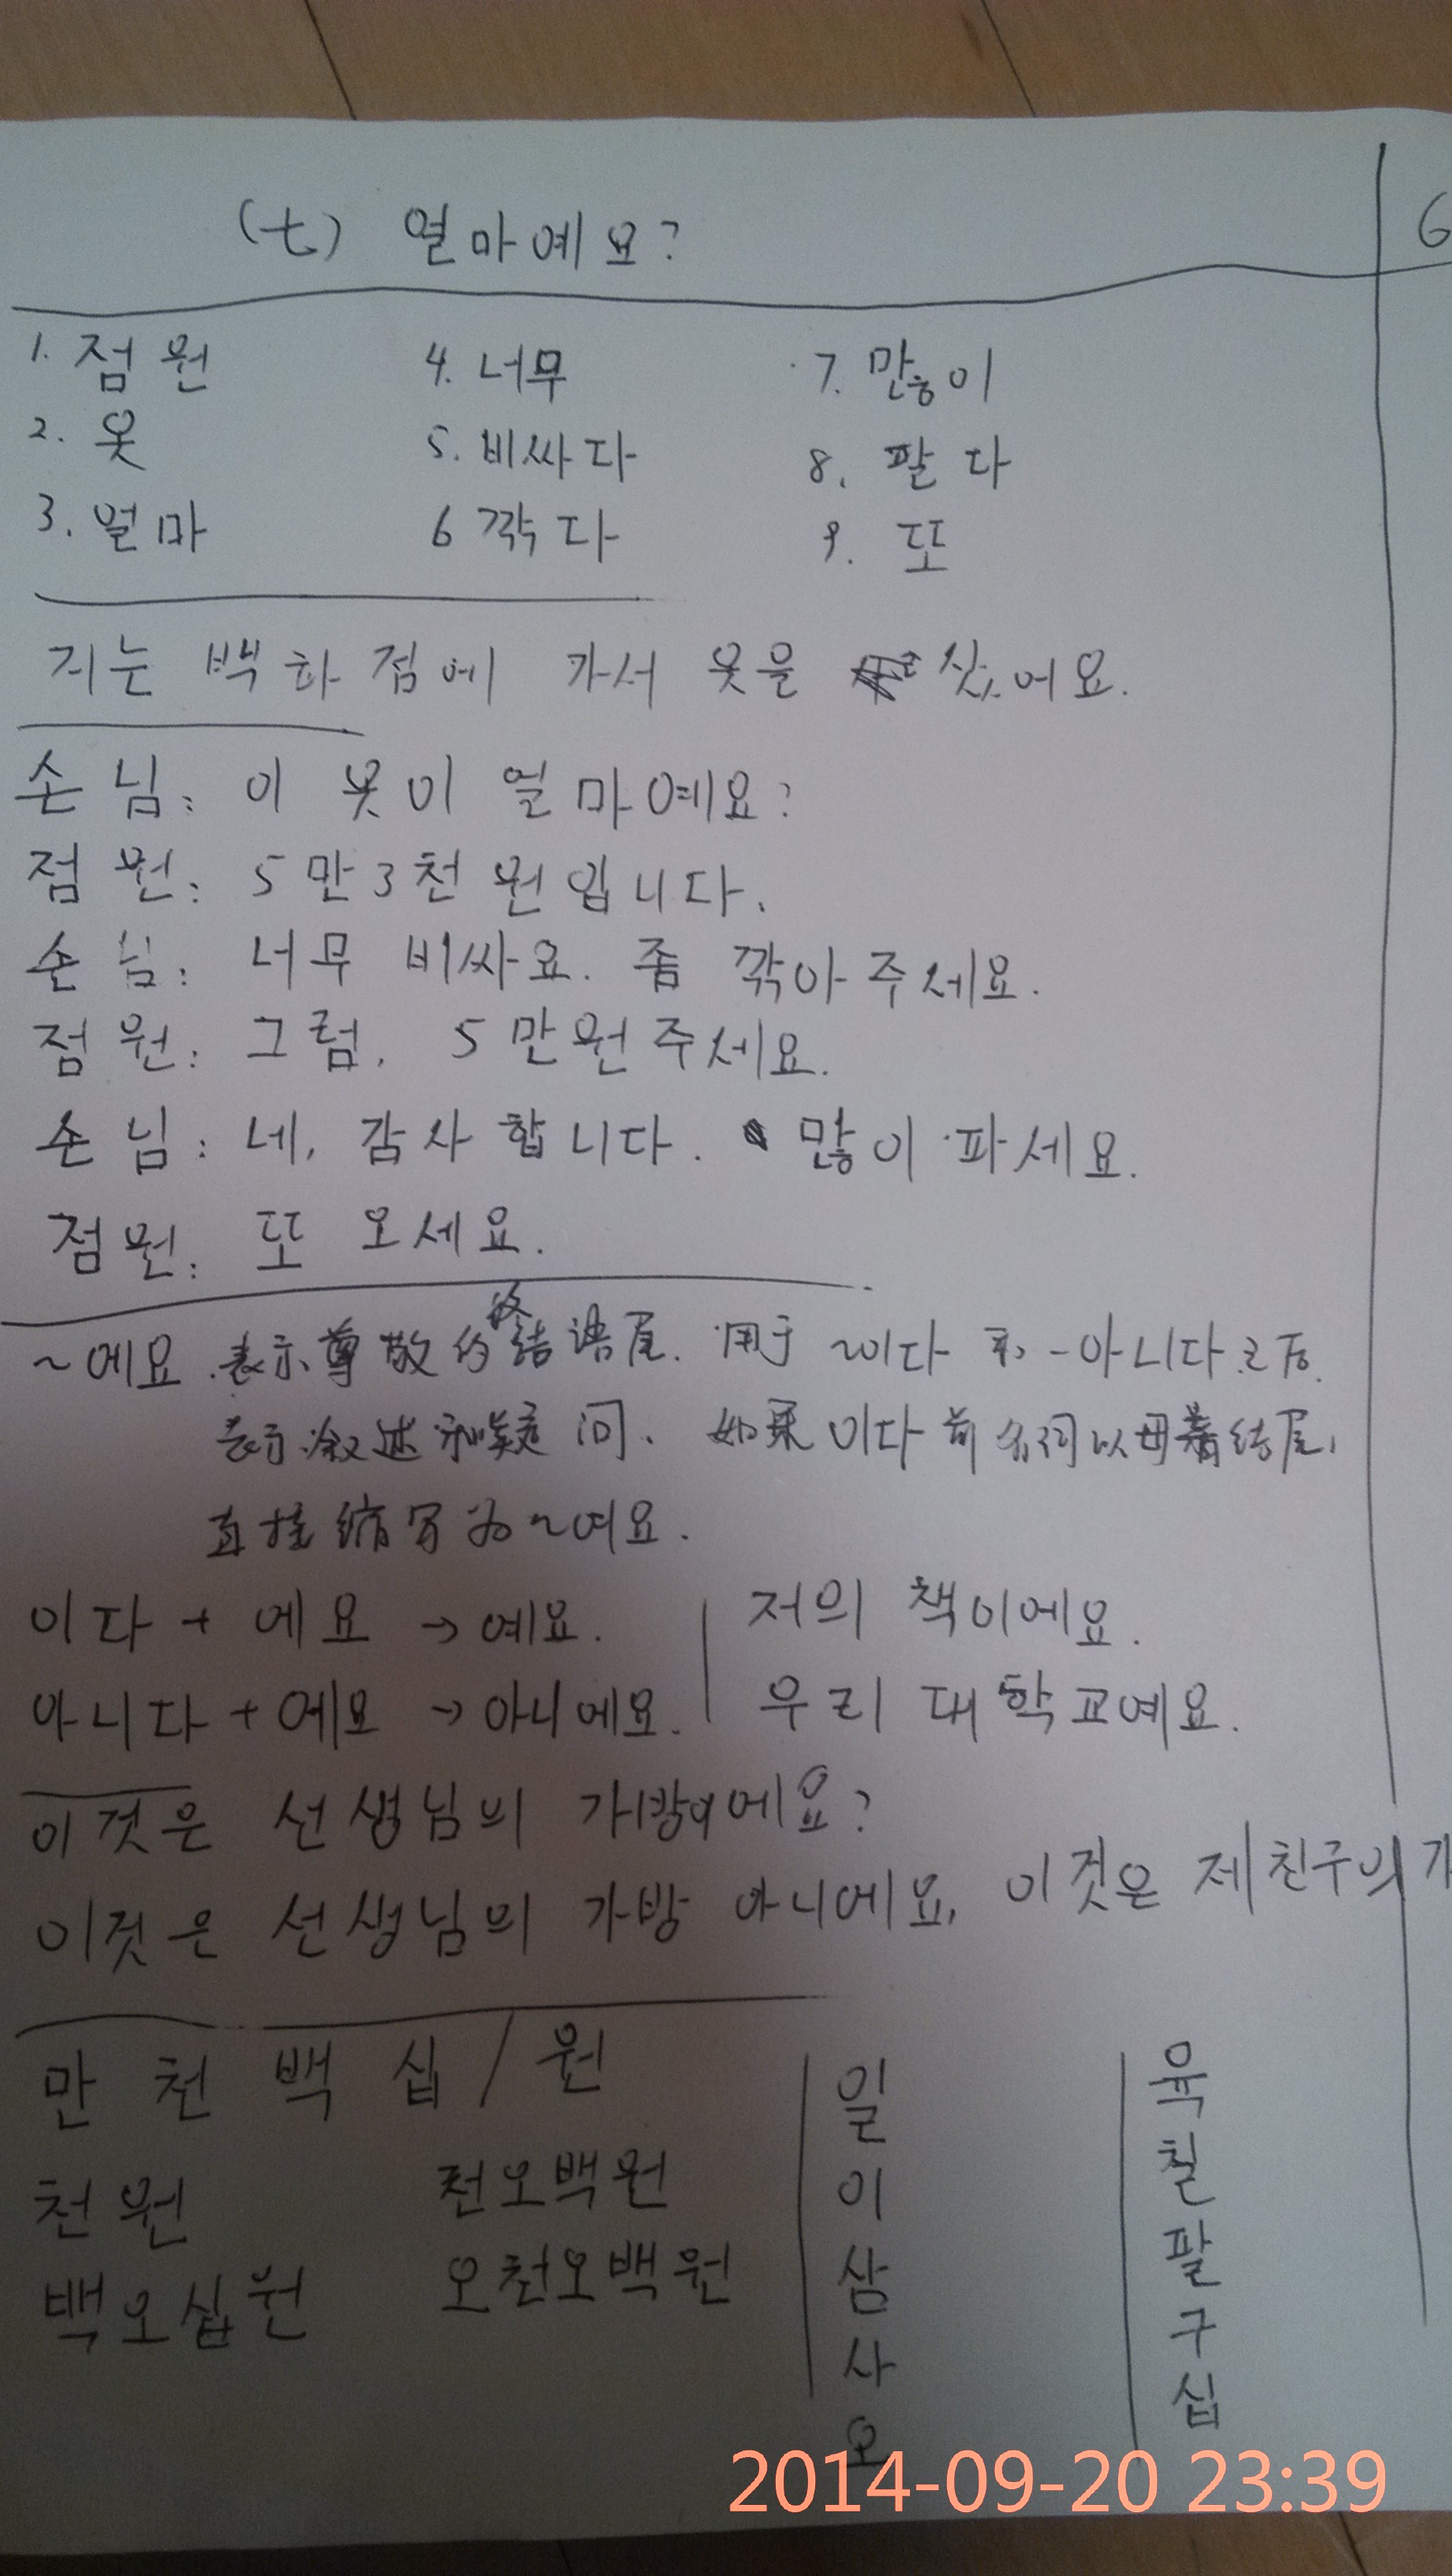 (七) 열마예요?
6
1. 점원 4. 너무 7. 많이
2. 옷 5. 비싸다 8. 팔다
3. 얼마 6 깍다 9. 또
지는 백화점에 가서 옷을 샀어요.
손님: 이 옷이 얼마예요?
점원: 5만3천원입니다.
손님: 너무 비싸요. 좀 깎아주세요.
점원: 그럼, 5만원주세요.
손님: 네, 감사합니다. 많이 파세요.
점원: 또 오세요.
~에요. 表示尊敬的终结语尾. 用于 ~이다 和 -아니다之后.
表示叙述和疑问. 如果 이다 前名词以母音结尾,
直接缩写为~여요.
이다 + 에요 → 예요. 저의 책이에요.
아니다 + 에요 → 아니에요. 우리 대학교예요.
이것은 선생님의 가방이에요?
이것은 선생님의 가방 아니에요, 이것은 제친구의 가
만 천 백 십 / 원
천원 천오백원
백오십원 오천오백원
일 육
이 칠
삼 팔
사 구
오 십
2014-09-20 23:39